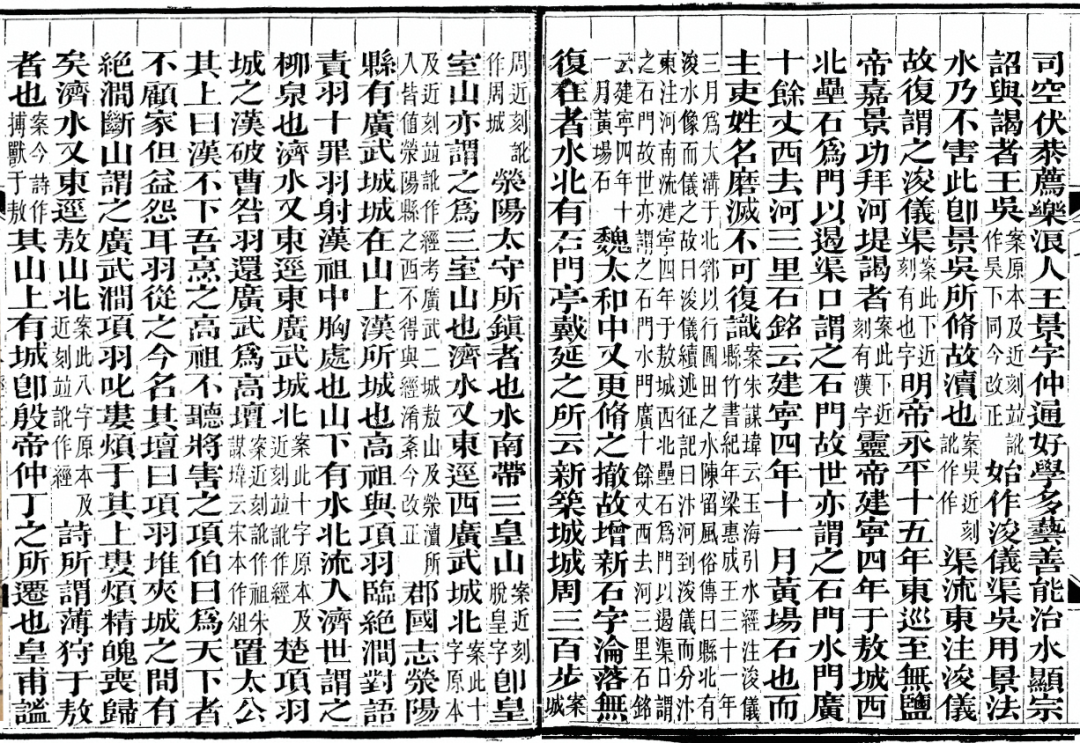 司空伏恭薦樂浪人王景字仲通好學多藝善能治水顯宗
詔與謁者王吳案原本及近刻竝訛作吴下同今改正始作浚儀渠吳用景法
水乃不害此卽景吳所脩故瀆也案吳近刻訛作作渠流東注浚儀
故復謂之浚儀渠案此下近刻有也字明帝永平十五年東巡至無鹽
帝嘉景功拜河堤謁者案此下近刻有漢字靈帝建寧四年于敖城西
北壘石爲門以遏渠口謂之石門故世亦謂之石門水門廣
十餘丈西去河三里石銘云建寧四年十一月黃場石也而
主吏姓名磨滅不可復識案朱謀瑋云玉海引水經注浚儀縣竹書紀年梁惠成王三十一年
三月爲大溝于北郛以行圃田之水陳留風俗傳曰縣北有浚水像而儀之故曰浚儀續述征記曰汴河到浚儀而分汴
東注河南流建寧四年于敖城西北壘石爲門以遏渠口謂之石門故世亦謂之石門水門廣十餘丈西去河三里石銘
云建寧四年十一月黃場石魏太和中又更脩之撤故增新石字淪落無
復在者水北有石門亭戴延之所云新築城城周三百步案城
周近刻訛作周城滎陽太守所鎮者也水南帶三皇山案近刻脫皇字卽皇
室山亦謂之爲三室山也濟水又東逕西廣武城北案此十字原本
及近刻竝訛作經考廣武二城敖山及滎瀆所人皆值滎陽縣之西不得與經淆紊今改正郡國志滎陽
縣有廣武城城在山上漢所城也高祖與項羽臨絕澗對語
責羽十罪羽射漢祖中胸處也山下有水北流入濟世謂之
柳泉也濟水又東逕東廣武城北案此十字原本及近刻竝訛作經楚項羽
城之漢破曹咎羽還廣武爲高壇案近刻訛作祖朱謀瑋云宋本作俎置太公
其上曰漢不下吾烹之高祖不聽將害之項伯曰爲天下者
不顧家但益怨耳羽從之今名其壇曰項羽堆夾城之間有
絕澗斷山謂之廣武澗項羽叱婁煩于其上婁煩精魄喪歸
矣濟水又東逕敖山北案此八字原本及近刻竝訛作經詩所謂薄狩于敖
者也案今詩作搏獸于敖其山上有城卽殷帝仲丁之所遷也皇甫謐